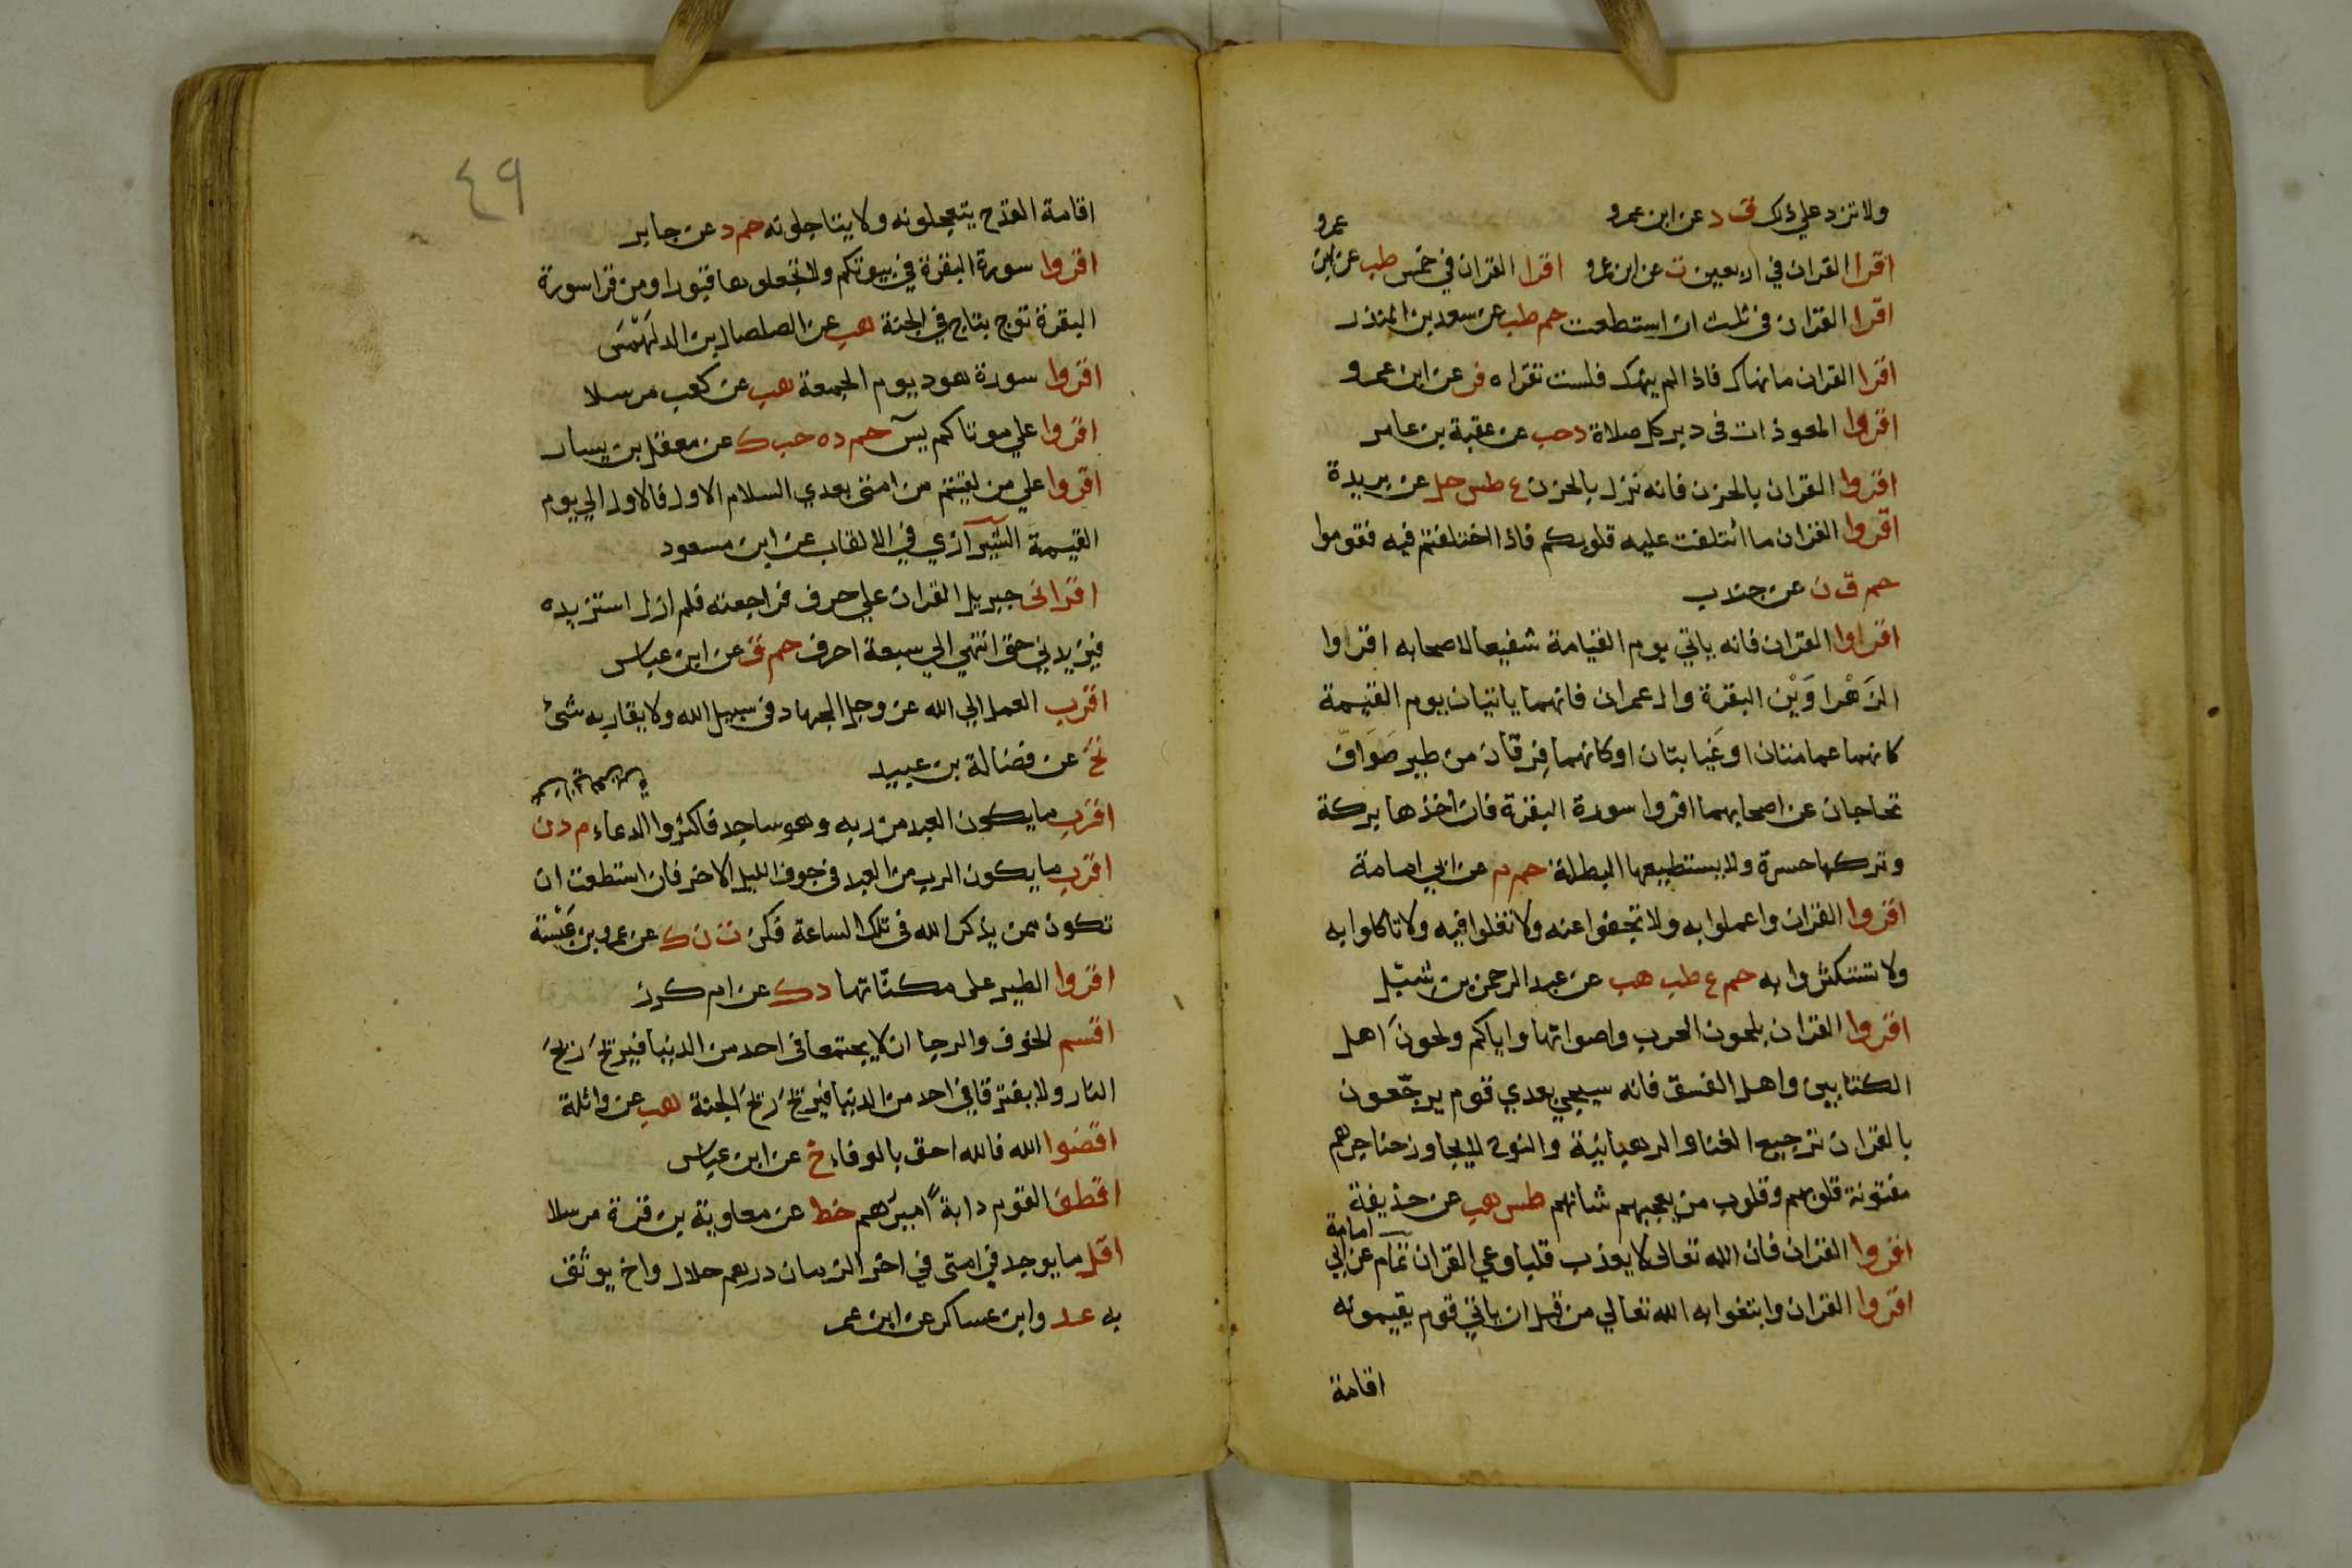 ولا تزد علي ذلك ق د عن ابن عمرو
اقرا القران في اربعين ت عن ابن عمرو اقرا القران في خمس طب عن ابن
عمرو
اقرا القران في ثلث ان استطعت حم طب عن سعد بن المنذر
اقرا القران ما نهاك فاذا لم ينهك فلست تقراه فر عن ابن عمرو
اقروا المعوذات في دبر كل صلاة د حب عن عقبة بن عامر
اقروا القران بالحزن فانه نزل بالحزن ع طس حل عن بريدة
اقروا القران ما ائتلفت عليه قلوبكم فاذا اختلفتم فيه فقوموا
حم ق ن عن جندب
اقراوا القران فانه ياتي يوم القيامة شفيعا لاصحابه اقراوا
الزَهْراوَيْن البقرة وال عمران فانهما ياتيان يوم القيمة
كانهما عمامتان او غَيابتان او كانهما فِرقان من طير صَوَافّ
تحاجان عن اصحابهما اقروا سورة البقرة فان اخذها بركة
وتركها حسرة ولا يستطيعها البطلة حم م عن ابي امامة
اقروا القران واعملوا به ولا تجفوا عنه ولا تغلوا فيه ولا تاكلوا به
ولا تستكثروا به حم ع طب هب عن عبد الرحمن بن شبل
اقروا القران بلحون العرب واصواتها واياكم ولحون اهل
الكتابين واهل الفسق فانه سيجي بعدي قوم يرجّعون
بالقران ترجيع الغنا والرهبانية والنوح لا يجاوز حناجرهم
مفتونة قلوبهم وقلوب من يعجبهم شانهم طس هب عن حذيفة
اقروا القران فان الله تعالى لا يعذب قلبا وعي القران تمام عن ابي
امامة
اقروا القران وابتغوا به الله تعالي من قبل ان ياتي قوم يقيمونه
اقامة
٤٩
اقامة القدح يتعجلونه ولا يتاجلونه حم د عن جابر
اقروا سورة البقرة في بيوتكم ولا تجعلوها قبورا ومن قرا سورة
البقرة توج بتاج في الجنة هب عن الصلصال بن الدلَهْمَس
اقروا سورة هود يوم الجمعة هب عن كعب مرسلا
اقروا علي موتاكم يس حم د ه حب ك عن معقل بن يسار
اقروا علي من لقيتم من امتي بعدي السلام الاول فالاول الي يوم
القيمة الشيرازي في الالقاب عن ابن مسعود
اقراني جبريل القران علي حرف فراجعته فلم ازل استزيده
فيزيدني حتى انتهي الي سبعة احرف حم ق عن ابن عباس
اقرب العمل الي الله عز وجل الجهاد في سبيل الله ولا يقاربه شئ
تخ عن فضالة بن عبيد
اقرب ما يكون العبد من ربه وهو ساجد فاكثروا الدعاء م د ن
اقرب ما يكون الرب من العبد في جوف الليل الاخر فان استطعت ان
تكون ممن يذكر الله في تلك الساعة فكن ت ن ك عن عمرو بن عَبَسة
اقروا الطير على مكناتها د ك عن ام كرز
اقسم الخوف والرجا ان لا يجتمعا في احد من الدنيا فيرح ريح
النار ولا يفترقا في احد من الدنيا فيرح ريح الجنة هب عن واثلة
اقضوا الله فالله احق بالوفاء خ عن ابن عباس
اقطف القوم دابةً اميرهم خط عن معاوية بن قرة مرسلا
اقل ما يوجد في امتي في اخر الزمان درهم حلال واخ يوثق
به عد وابن عساكر عن ابن عمر